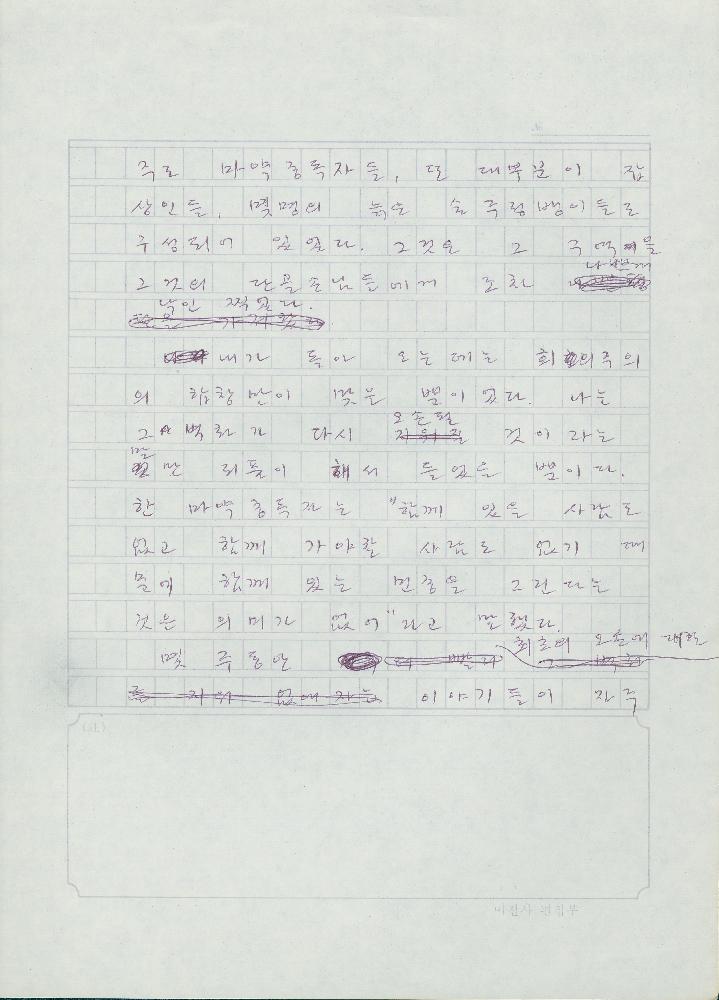 주로 마약 중독자들, 또 대부분이 잡
상인들, 몇명의 늙은 술 주정뱅이들로
구성되어 있었다. 그것은 그 구역을
나쁘게
그것의 단골손님들에게 조차
낙인 찍었다.
내가 돌아 오는데는 회의주의
의 합창만이 맞은 뿐이었다. 나는
오손될
그 벽화가 다시 지워질 것이라는
말
만 되풀이 해서 들었을 뿐이다.
한 마약 중독자는 "함께 있을 사람도
없고 함께 가야할 사람도 없기 때
문에 함께 있는 면상을 그린다는
것은 의미가 없어"라고 말했다.
최초의 오손에 대한
몇 주동안
이야기들이 자주
(SL)
편집부